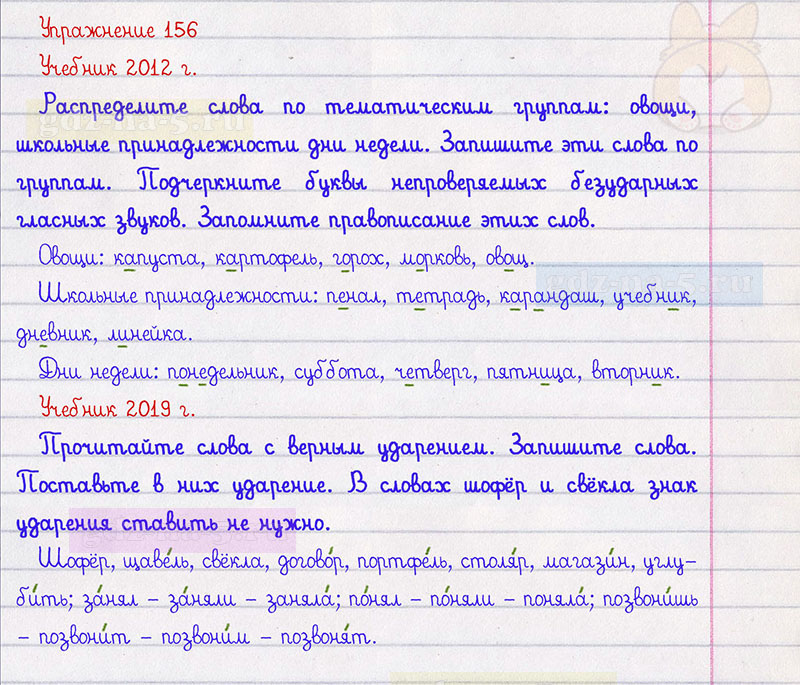 Упражнение 156
Учебник 2012 г.
Распределите слова по тематическим группам: овощи,
школьные принадлежности дни недели. Запишите эти слова по
группам. Подчеркните буквы непроверяемых безударных
гласных звуков. Запомните правописание этих слов.
Овощи: капуста, картофель, горох, морковь, овощ.
Школьные принадлежности: пенал, тетрадь, карандаш, учебник,
дневник, линейка.
Дни недели: понедельник, суббота, четверг, пятница, вторник.
Учебник 2019 г.
Прочитайте слова с верным ударением. Запишите слова.
Поставьте в них ударение. В словах шофёр и свёкла знак
ударения ставить не нужно.
Шофёр, щаве́ль, свёкла, догово́р, портфе́ль, столя́р, магази́н, углу-
би́ть; за́нял – за́няли – заняла́; по́нял – по́няли – поняла́; позвони́шь
– позвони́т – позвони́м – позвоня́т.
gdz-na-5.ru
gdz-na-5.ru